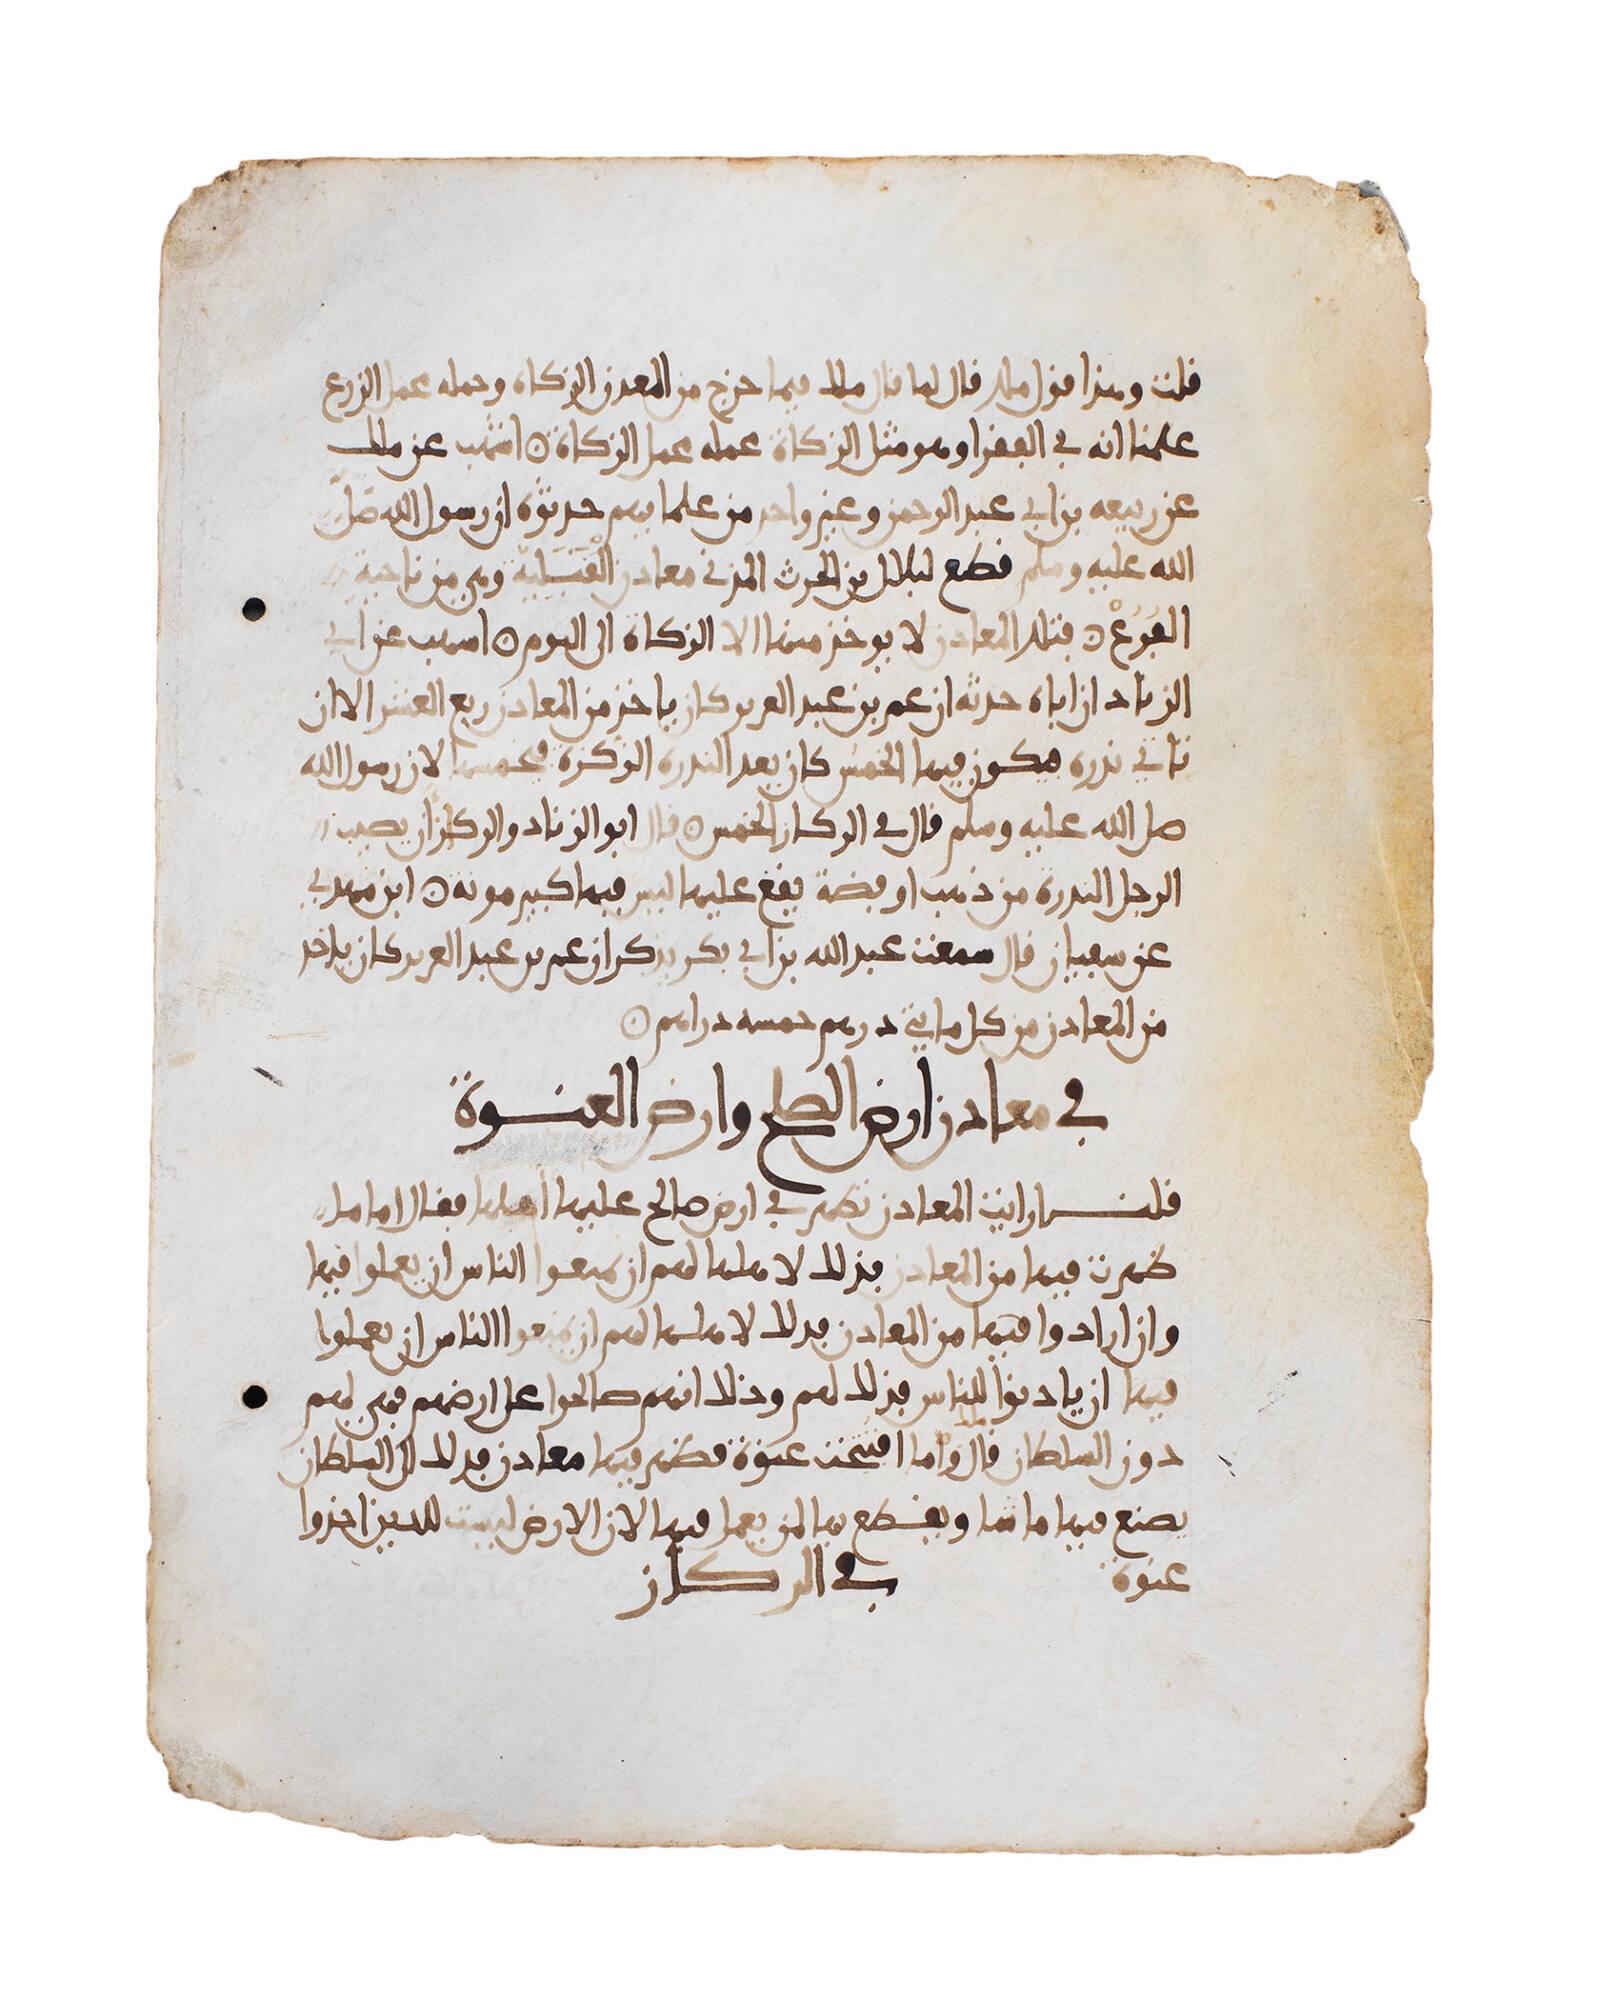 قلت وهذا قول ملك قال لما قال ملك فيما خرج من المعدن الزكاه وحمله محمل الزرع
علمنا انه في الفقرا وهو مثل الزكاة محمله محمل الزكاة ۞ اشهب عن ملك
عن ربيعه بن ابي عبد الرحمن وغير واحد من علمايهم حدثوه ان رسول الله صلى
الله عليه وسلم قطع لبلال بن الحرث المزني معادن القَبَلِيَّة وهي من ناحية
الفُرُعْ ۞ فتلك المعادن لا يوخذ منها الا الزكاة الى اليوم ۞ اشهب عن ابي
الزناد ان اباه حدثه ان عمر بن عبد العزيز كان ياخذ من المعادن ربع العشر الا ان
تاتي ندرة فيكون فيها الخمس كان يعد الندرة الركزة فيخمسها لان رسول الله
صلى الله عليه وسلم قال في الركاز الخمس ۞ قال ابو الزناد والركاز ان يصيب
الرجل الندرة من ذهب او فضة يقع عليها ليس فيها كبير مونة ۞ ابن مهدي
عن سفيان قال سمعت عبد الله بن ابي بكر يذكر ان عمر بن عبد العزيز كان ياخذ
من المعادن من كل مايتي درهم خمسه دراهم ۞
في معادن ارض الصلح وارض العنوة
قلت ارايت المعادن تظهر في ارض صالح عليها اهلها فقال اما ما
ظهرت فيها من المعادن فذلك لاهلها لهم ان يمنعوا الناس ان يعملوا فيها
وان ارادوا فيها من المعادن فذلك لاهلها لهم ان يمنعوا الناس ان يعملوا
فيها ان ياذنوا للناس فذلك لهم وذلك انهم صالحوا على ارضهم فهي لهم
دون السلطان قال وما افتتحت عنوة فظهر فيها معادن فذلك الى السلطان
يصنع فيها ما شا ويقطع بها لمن يعمل فيها لان الارض ليست للذين اخذوا
عنوة في الركاز